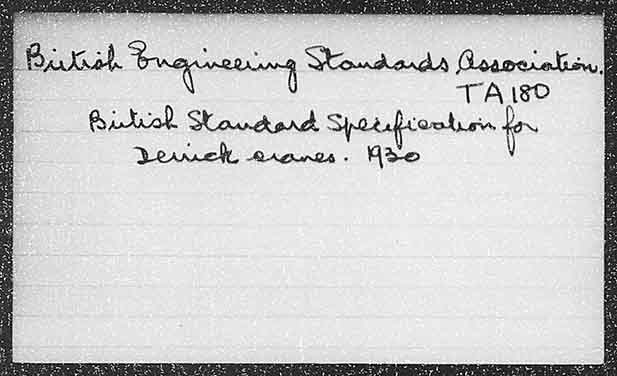 British Engineering Standards Association.
TA 180
British Standard Specification for
Derrick cranes. 1930